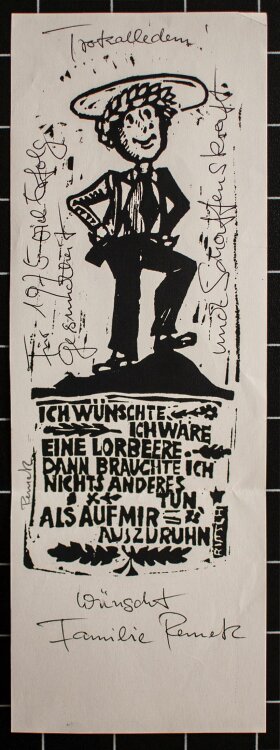 Trotzalledem!
Für 1975 viel Erfolg,
Gesundheit
und Schaffenskraft
ICH WÜNSCHTE
ICH WÄRE
EINE LORBEERE.
DANN BRAUCHTE ICH
NICHTS ANDERES
TUN
ALS AUF MIR
AUSZURUHN
wünscht
Familie Remetz